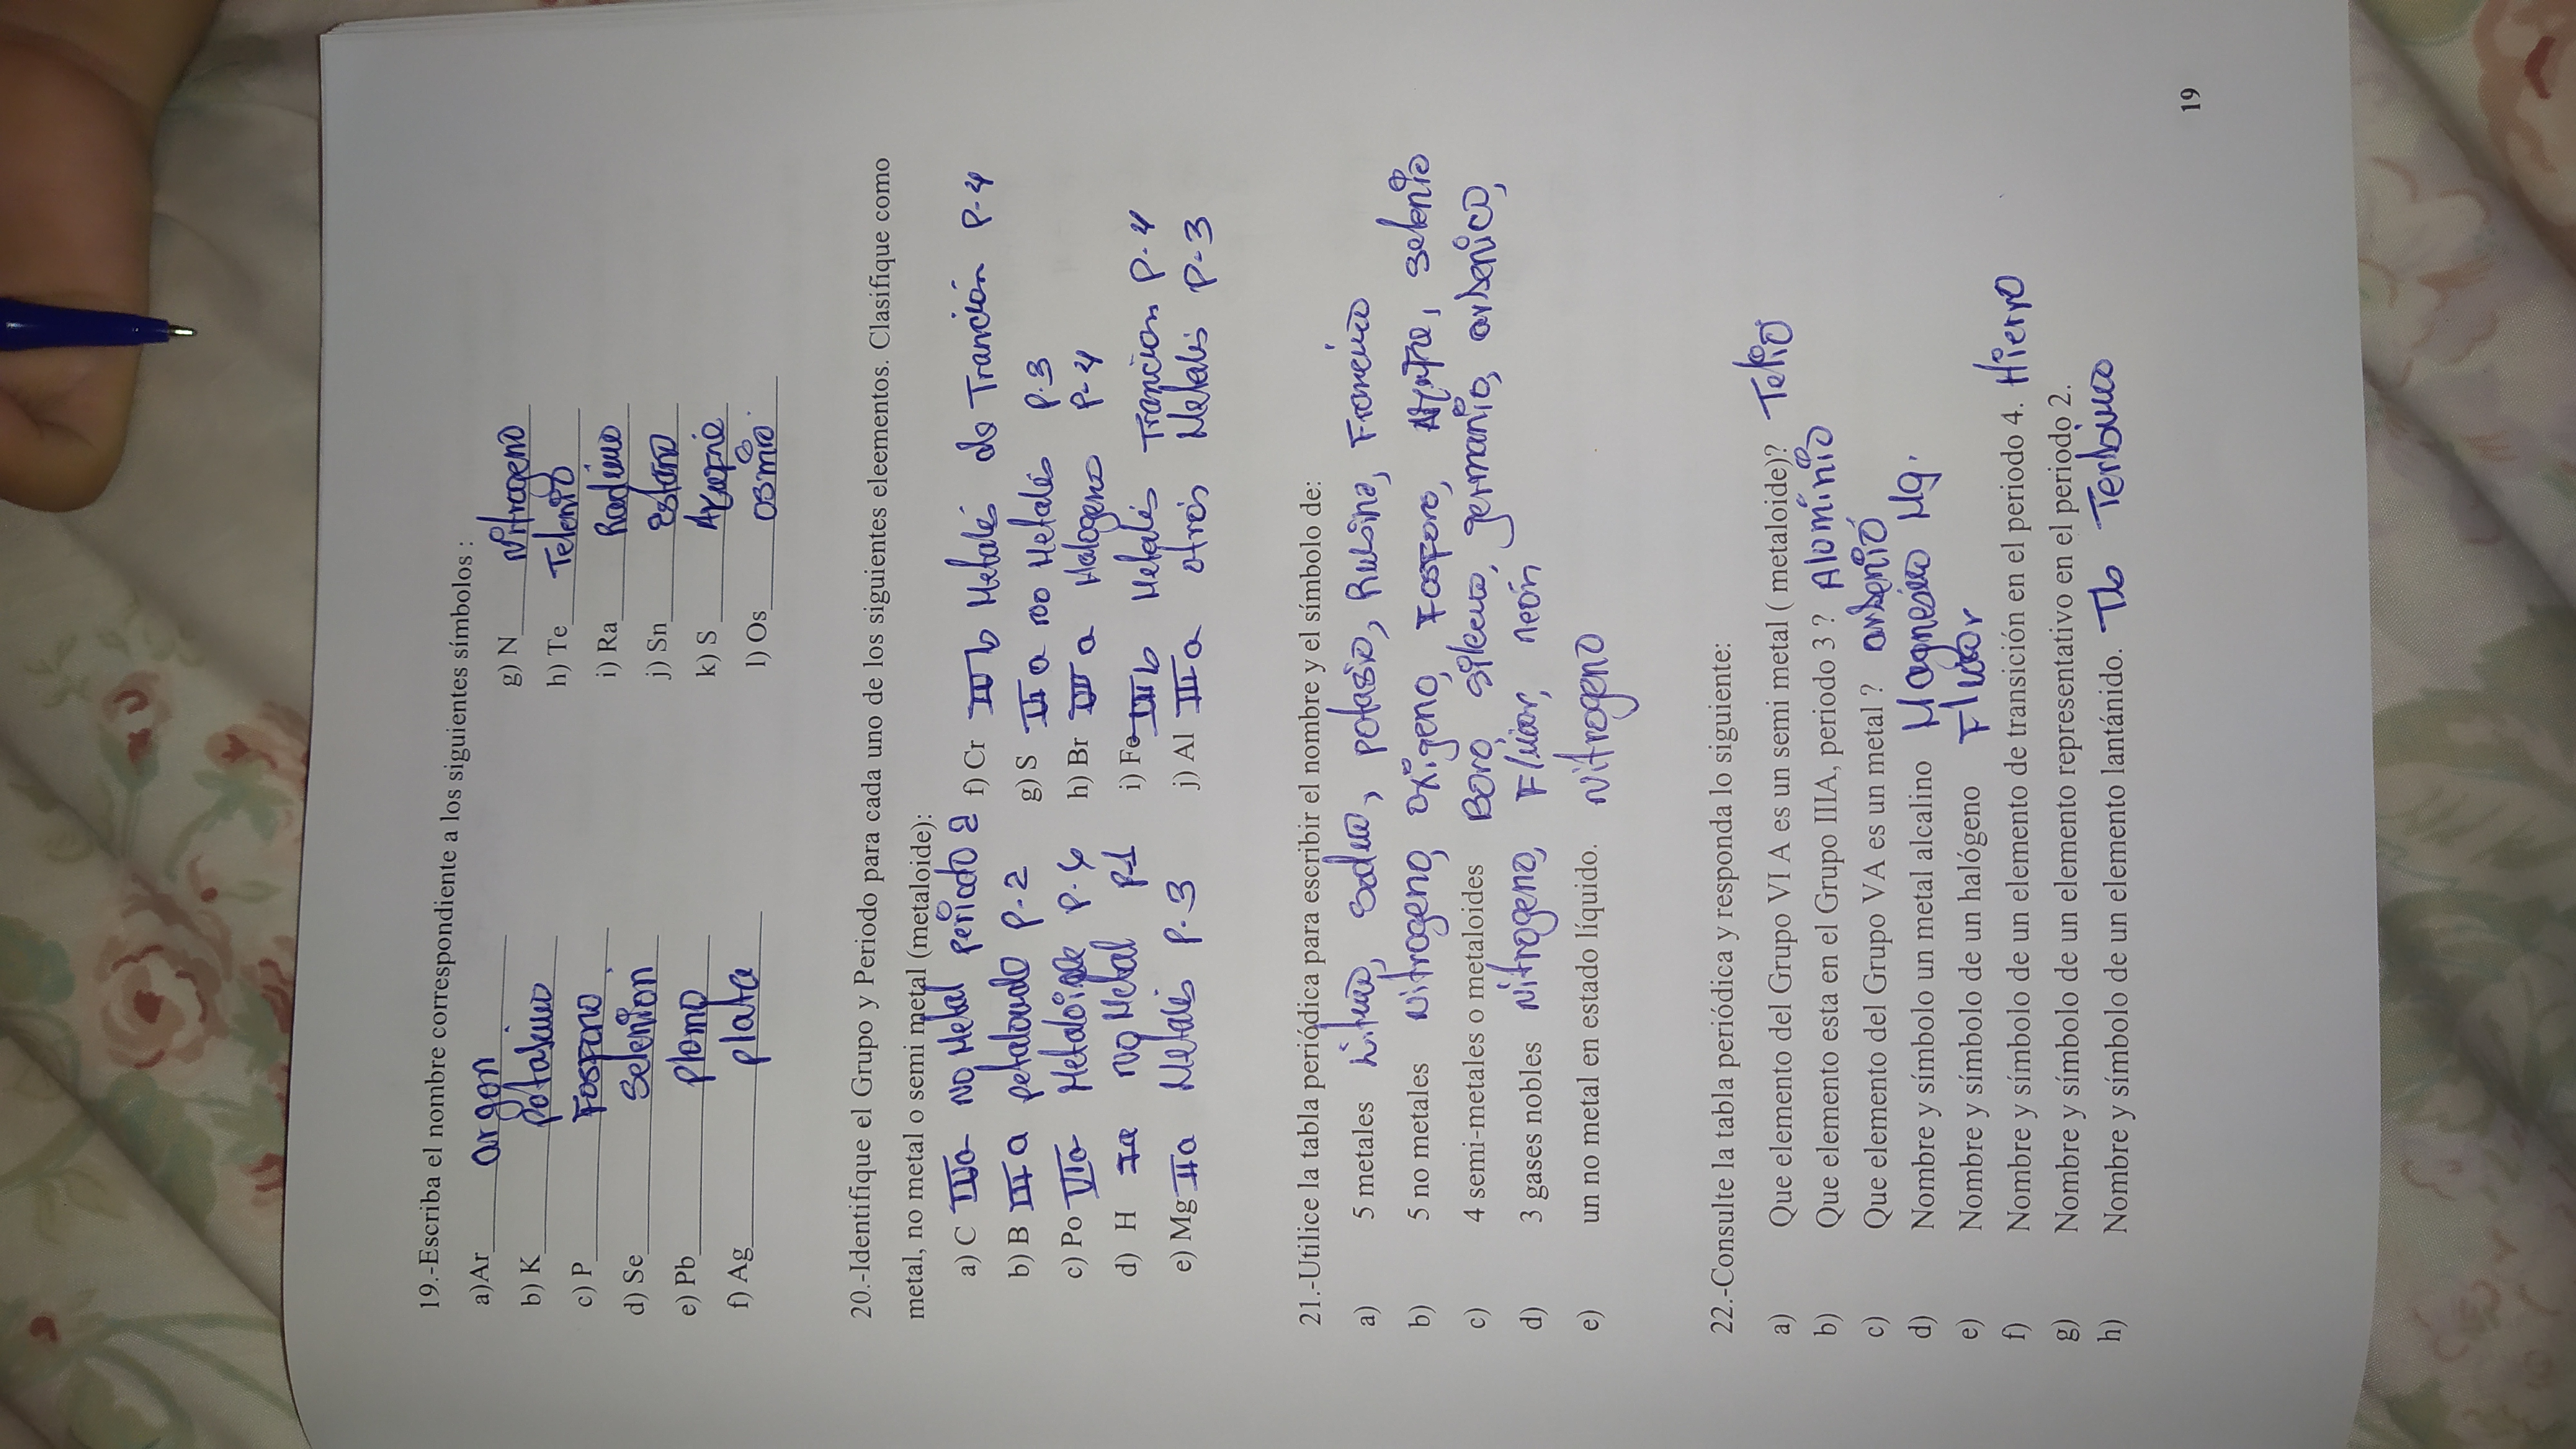 19.-Escriba el nombre correspondiente a los siguientes símbolos :
a)Ar argon g) N Nitrogeno
b) K potasiuo h) Te Telenio
c) P Fosforo i) Ra Radiuo
d) Se Selenion j) Sn estano
e) Pb plomo k) S
f) Ag plata l) Os osmio.
20.-Identifique el Grupo y Periodo para cada uno de los siguientes eleementos. Clasifique como
metal, no metal o semi metal (metaloide):
a) C no Metal periodo 2 f) Cr Metales de Trancion P-4
b) B III a P.2 g) S a no Metales P.3
c) Po VIa Metaloide P. h) Br a Halogeno P-4
d) H Ia no Metal P1 i) Fe b Metales Trancion P-4
e) Mg IIa Metales P.3 j) Al a otros Metales P-3
21.-Utilice la tabla periódica para escribir el nombre y el símbolo de:
a) 5 metales Lituo, Soduo, potasio, Rubine, Francuo
b) 5 no metales nitrogeno, oxigeno, Fosforo, selenio
c) 4 semi-metales o metaloides Boro silecuo, germanio, arsenico,
d) 3 gases nobles nitrogeno, Flúor, neón
e) un no metal en estado líquido. nitrogeno
22.-Consulte la tabla periódica y responda lo siguiente:
a) Que elemento del Grupo VI A es un semi metal ( metaloide)? Telio
b) Que elemento esta en el Grupo IIIA, periodo 3 ? Alominio
c) Que elemento del Grupo VA es un metal ? arsenio
d) Nombre y símbolo un metal alcalino Magnesuo Mg.
e) Nombre y símbolo de un halógeno Fluor
f) Nombre y símbolo de un elemento de transición en el periodo 4. Hierro
g) Nombre y símbolo de un elemento representativo en el periodo 2.
h) Nombre y símbolo de un elemento lantánido. Tb Terbiuo
19